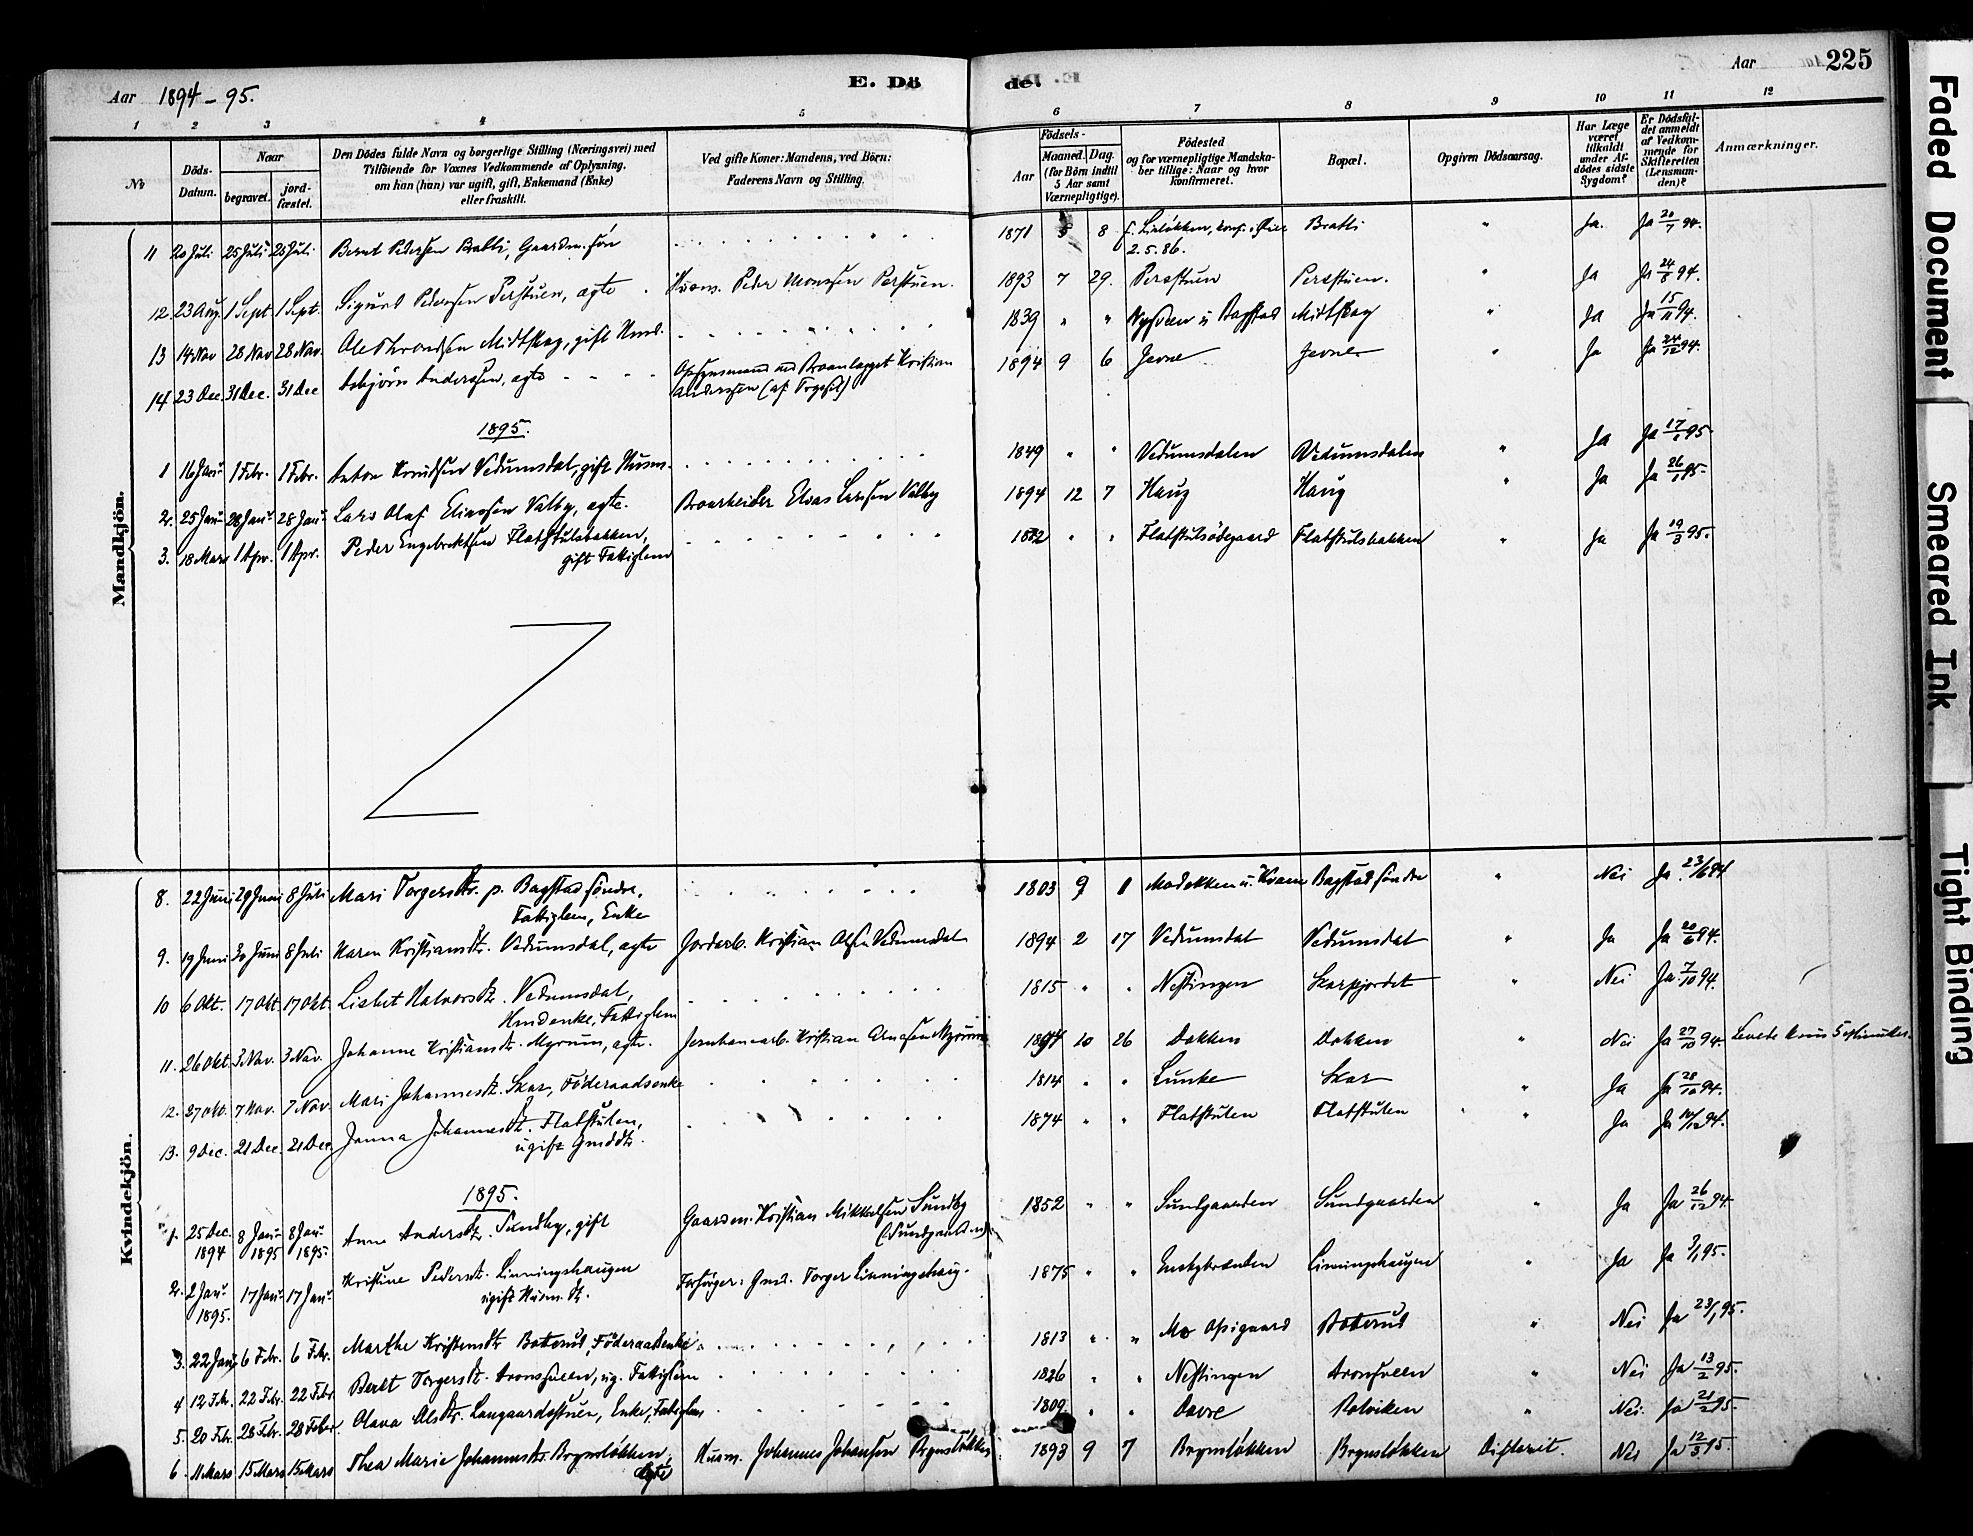 Aar 1894-95.
E. Döde.
Aar 225
1 2 3 4 5 6 7 8 9 10 11 12
No
Döds-Datum.
Naar
begravet.
jordfæstet.
Den Dödes fulde Navn og borgerlige Stilling (Næringsvei) med
Tilföiende for Voxnes Vedkommende af Oplysning,
om han (hun) var ugift, gift, Enkemand (Enke)
eller fraskilt.
Ved gifte Koner: Mandens, ved Börn:
Faderens Navn og Stilling.
Födsels-
Aar
Maaned. Dag.
(for Börn indtil
5 Aar samt
Værnepligtige).
Födested
og for værnepligtige Mandska-
ber tillige: Naar og hvor
konfirmeret.
Bopæl.
Opgiven Dödsaarsag.
Har Læge
været
tilkaldt
under Af-
dödes sidste
Sygdom?
Er Dödsfal-
det anmeldt
af Vedkom-
mende for
Skifteretten
(Lensman-
den)?
Anmærkninger.
Mandkjön.
11 20 Juli 25 Juli 25 Juli Bernt Pedersen Bratli, Gaardm. søn 1871 5 8 Bratli " Ja. Ja 20/7 94.
2.5.86.
12. 23 Aug. 1 Sept. 1 Sept. Sigurd Pedersen Perstuen, ægte Husm. Peder Monssen Perstuen. 1893 7 29. Perstuen Perstuen. " Ja Ja 24/8 94.
13 14 Nov 28 Nov 28 Nov. Ole Throndsen Midtskog, gift 1839 " " Bagstad Midtskog " Ja Ja 15/11 94.
14 23 Dec. 31 Dec. 31 Dec Asbjörn Anderssen, ægte Opsynsmand ved Kristian 1894 9 6 Jevne Jevne " Ja Ja 24/12 94.
Anderssen
1895.
1 16 Jan. 1 Febr. 1 Febr. Anton Knudsen Vedumsdal, gift Husm. 1849 " " Vedumsdalen Vedumsdalen " Ja Ja 17/1 95
2. 25 Jan. 28 Jan. 28 Jan. Lars Olaf Eliassen Valby, ægte. Elias Larssen Valby 1894 12 7 Haug Haug " Ja Ja 26/1 95.
3. 18 Mars 1 Apr. 1 Apr. Peder Engebretsen Flatstulsbakken, " " Flatstulsödegaard Flatstulsbakken " Ja Ja 19/3 95.
gift Fattiglem
Kvindekjön.
8. 22 Juni 29 Juni 8 Juli Mari Torgersdtr. p. Bagstad söndre, 1803 9 1 Kvam Bagstad söndre " Nei Ja 23/6 94
Fattiglem, Enke
9. 19 Juni 30 Juni 8 Juli Karen Kristiansdtr. Vedumsdal, ægte Jordarb. Kristian Olsen Vedumsdal 1894 2 17 Vedumsdal Vedumsdal " Ja Ja 20/6 94.
10 6 Okt. 17 Okt. 17 Okt. Lisbet Halvorsdtr. Vedumsdal, 1815 " " Nestingen Skarpjordet " Nei Ja 7/10 94.
Fattiglem
11. 26 Okt. 3 Nov. 3 Nov. Johanne Kristiansdtr. Myrum, ægte. Jernbanearb. Kristian 1894 10 26 Dokken Dokken " Nei Ja 27/10 94. Levede kun 5 Minutter.
12. 27 Okt. 7 Nov. 7 Nov. Mari Johannesdtr. Skar, Föderaadsenke 1814 " " Lunke Skar " Ja Ja 28/10 94.
13. 9 Dec. 21 Dec. 21 Dec. Janna Johannesdtr. Flatstulen, 1874 " " Flatstulen Flatstulen " Ja Ja 94.
ugift
1895.
1. 25 Dec. 1894 8 Jan. 1895 8 Jan. 1895. Anne Andersdtr. Sundby, gift Gaardm. Kristian Mikkelsen Sundby 1852 " " Sundgaarden Sundgaarden " Ja Ja 26/12 94.
2. 2 Jan. 1895. 17 Jan. 17 Jan. Kristine Pedersdtr. Linningshaugen Forsörger: Torger Linningshaug. 1875 " " Linningshaugen " Ja Ja 3/1 95.
ugift Husm. dtr.
3. 22 Jan. 6 Febr. 6 Febr. Marthe Kristensdtr Botterud, Föderaadsenke 1813 " " Mo Opigaard Botterud " Nei Ja 23/1 95.
4 12 Feb. 22 Febr. 22 Febr. Berit Torgersdtr. ug. Fattiglem 1826 " " Nestingen " Nei Ja 13/2 95.
5. 20 Febr. 28 Febr. 28 Febr. Olava Olsdtr. Langaardsstuen, Enke, Fattiglem 1809 " " Dovre Rolviken " Nei. Ja 21/2 95.
6 11 Mars 15 Mars 15 Mars Thea Marie Johannesdtr. Brynsløkken, Husm. Johannes Johansen Brynsløkken 1893 9 7 Brynsløkken Brynsløkken Difterit. Nei Ja 12/3 95.
ægte
Faded Document
Smeared Ink
Tight Binding